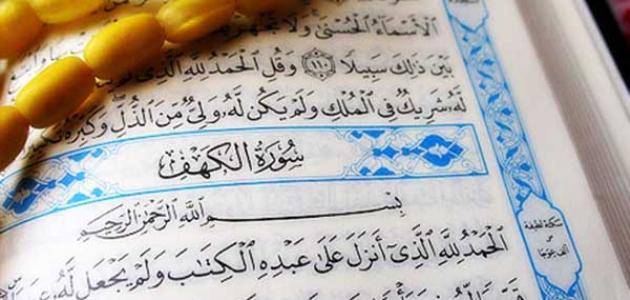 الْأَسْمَاءُ الْحُسْنَىٰ وَلَا تَجْهَرْ
بَيْنَ ذَٰلِكَ سَبِيلًا ١١٠ وَقُلِ الْحَمْدُ لِلَّهِ الَّذِي
لَّهُ شَرِيكٌ فِي الْمُلْكِ وَلَمْ يَكُن لَّهُ وَلِيٌّ مِّنَ الذُّلِّ وَكَبِّرْهُ تَكْبِيرًا
سُورَةُ الْكَهْفِ
بِسْمِ اللَّهِ الرَّحْمَٰنِ الرَّحِيمِ
الْحَمْدُ لِلَّهِ الَّذِي أَنزَلَ عَلَىٰ عَبْدِهِ الْكِتَابَ وَلَمْ يَجْعَل لَّهُ